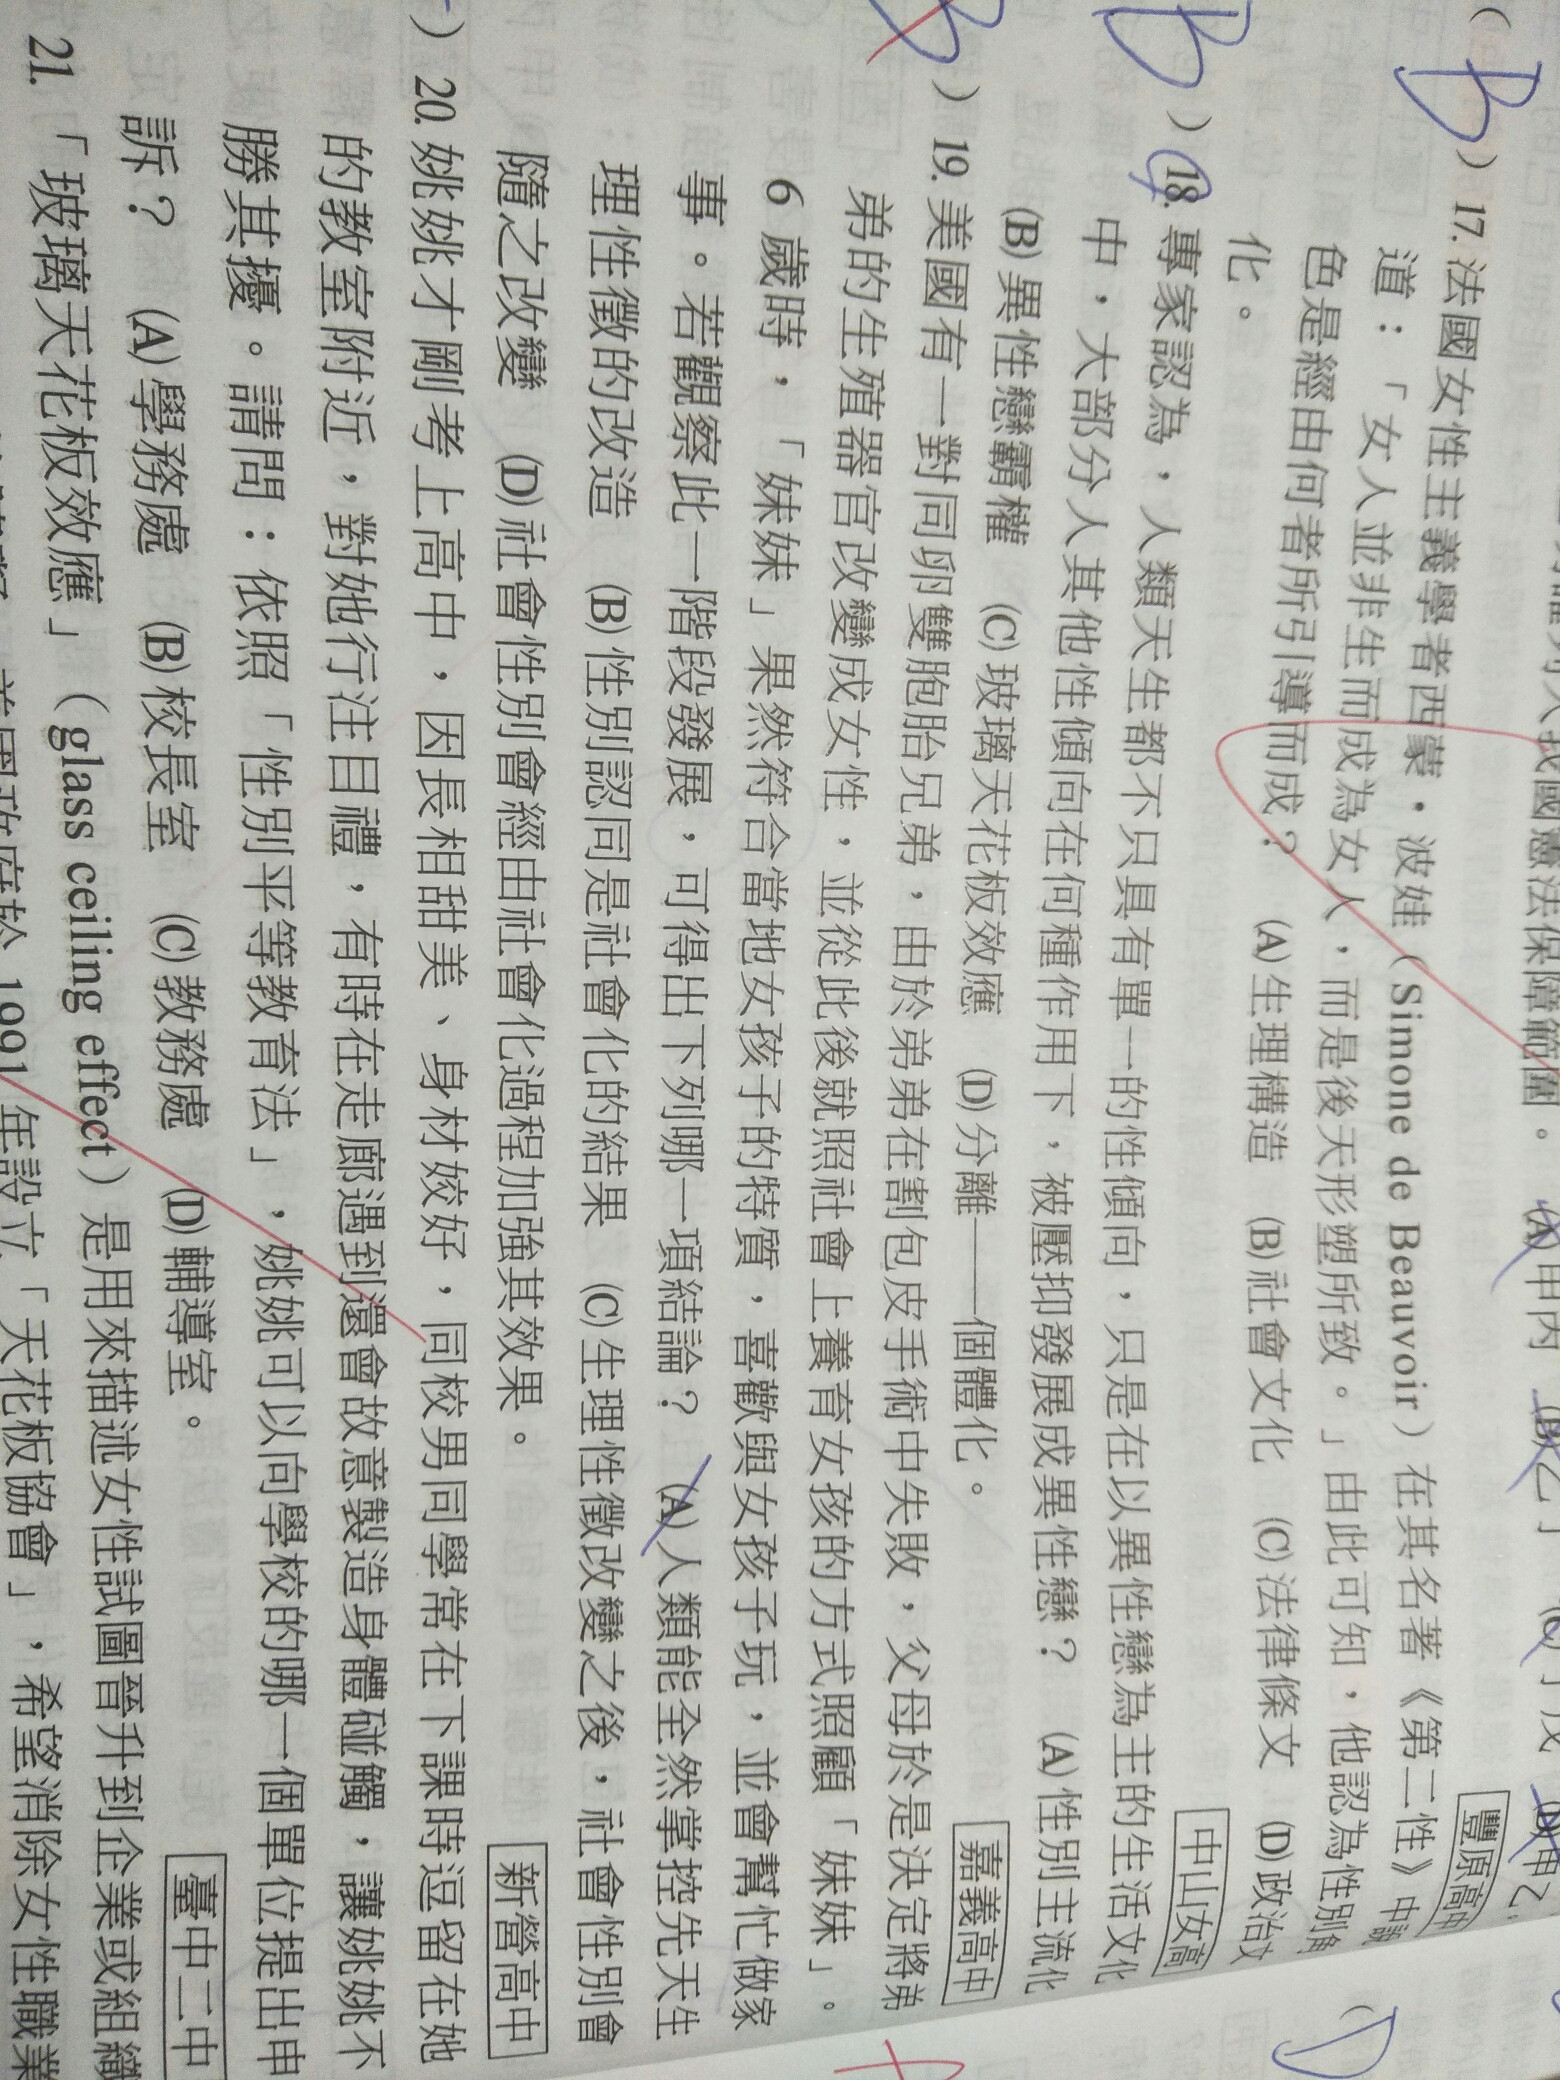 我國憲法保障範圍。 (A)甲丙 (B)乙丁 (C)丁戊 (D)甲乙
豐原高中
( B ) 17. 法國女性主義學者西蒙・波娃（Simone de Beauvoir）在其名著《第二性》中
道：「女人並非生而成為女人，而是後天形塑所致。」由此可知，他認為性別角
色是經由何者所引導而成？ (A)生理構造 (B)社會文化 (C)法律條文 (D)政治文
化。
中山女高
B ) 18. 專家認為，人類天生都不只具有單一的性傾向，只是在以異性戀為主的生活文化
中，大部分人其他性傾向在何種作用下，被壓抑發展成異性戀？ (A)性別主流化
(B)異性戀霸權 (C)玻璃天花板效應 (D)分離——個體化。
嘉義高中
B ) 19. 美國有一對同卵雙胞胎兄弟，由於弟弟在割包皮手術中失敗，父母於是決定將弟
弟的生殖器官改變成女性，並從此後就照社會上養育女孩的方式照顧「妹妹」。
6 歲時，「妹妹」果然符合當地女孩子的特質，喜歡與女孩子玩，並會幫忙做家
事。若觀察此一階段發展，可得出下列哪一項結論？ (A)人類能全然掌控先天生
理性徵的改造 (B)性別認同是社會化的結果 (C)生理性徵改變之後，社會性別會
隨之改變 (D)社會性別會經由社會化過程加強其效果。
新營高中
) 20. 姚姚才剛考上高中，因長相甜美、身材姣好，同校男同學常在下課時逗留在她
的教室附近，對她行注目禮，有時在走廊遇到還會故意製造身體碰觸，讓姚姚不
勝其擾。請問：依照「性別平等教育法」，姚姚可以向學校的哪一個單位提出申
訴？ (A)學務處 (B)校長室 (C)教務處 (D)輔導室。
臺中二中
21. 「玻璃天花板效應」（glass ceiling effect）是用來描述女性試圖晉升到企業或組織
美國政府於 1991 年設立「天花板協會」，希望消除女性職業
( D